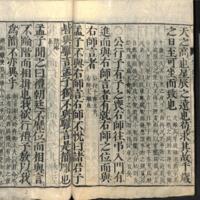 天之高也星辰之遠也苟求其故千歲
之日至可坐而致也
○公行子有子之喪右師往弔入門有
進而與右師言者有就右師之位而與
右師言者
孟子不與右師言右師不悅曰諸君子
皆與驩言孟子獨不與驩言是簡驩也
孟子聞之曰禮朝廷不歷位而相與言
不踰階而相揖也我欲行禮子敖以我
為簡不亦異乎